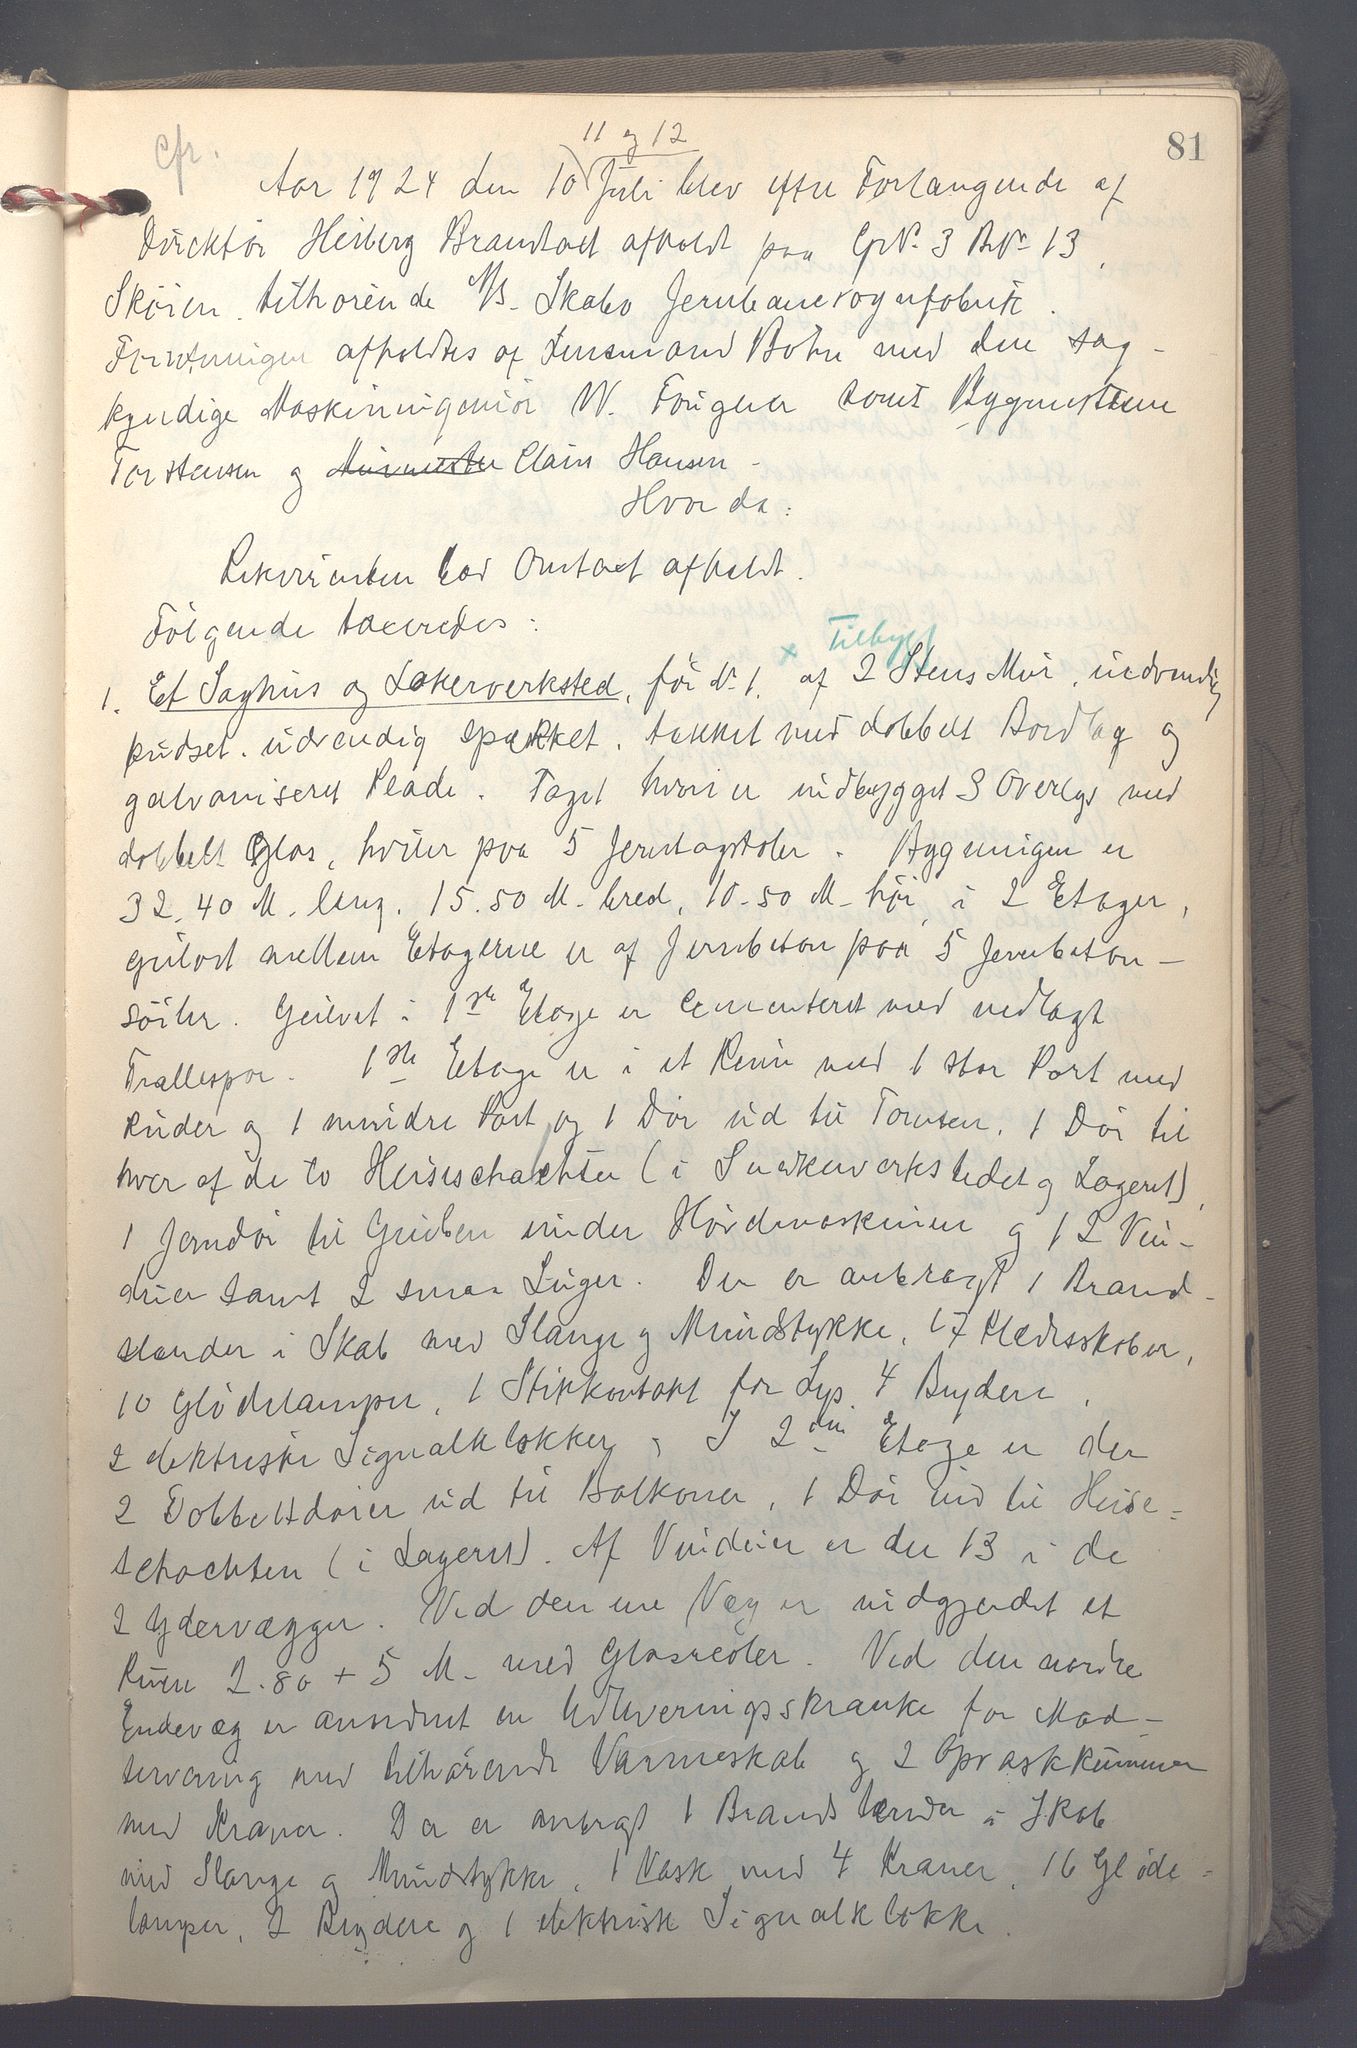 81
cfr.
11 og 12
Aar 1924 den 10 Juli blev efter Forlangende af
Direktør Heiberg Brandtaxt afholdt paa GNr 3 BNr 13,
Skøien, tilhørende A/S Skabo Jernbanevognfabrik.
Forretningen afholdtes af Lensmand Bøhn med den sag-
kyndige Maskiningeniør W. Fougner samt Bygmesterne
Torstensen og Murmester Claus Hansen -
Hvorda:
Rekvirenten lod Omtaxt afholdt.
Følgende taxeredes:
x Tilbygt
1. Et Saghus og Lakerverksted, før Nr 1, af 2 Stens Mur, indvendig
pudset, udvendig spækket, tækket med dobbelt Bordlag og
galvaniseret Plade. Taget hvori er indbygget 3 Overlys med
dobbelt Glas, hviler paa 5 Jerntagstoler. Bygningen er
32.40 M. lang, 15.50 M. bred, 10.50 M. høi, i 2 Etager,
gulvet mellem Etagerne er af Jernbeton paa 5 Jernbeton-
søiler. Gulvet i 1ste Etage er Cementeret med nedlagt
Trallespor. 1ste Etage er i et Rum med 1 stor Port med
Ruder og 1 mindre Port og 1 Dør ud til Tomten, 1 Dør til
hver af de to Heiseschachter (i Snekkerverkstedet og Lageret),
1 Jerndør til Gruben under Høvlmaskinen og 12 Vin-
duer samt 2 smaa Luger. Der er anbragt 1 Brand-
stænder i Skab med Slange og Mundstykke, 17 Klædesskaber,
10 Glødelamper, 1 Stikkontakt for Lys, 4 Brydere,
2 elektriske Signalklokker. I 2den Etage er der
2 Dobbeltdører ud til Balkoner, 1 Dør ind til Heise-
schachten (i Lageret). Af Vinduer er der 13 i de
2 Ydervægger. Ved den ene Væg er indgjerdet et
Rum 2.80 + 5 M. med Glasreoler. Ved den nordre
Endevæg er anordnet en Udleveringsskranke for Mad-
servering med tilhørende Varmeskab og 2 Opvaskkummer
med Kraner. Der er anbragt 1 Brandstænder i Skab
med Slange og Mundstykke, 1 Vask med 4 Kraner, 16 Gløde-
lamper, 2 Brydere og 1 elektrisk Signalklokke.